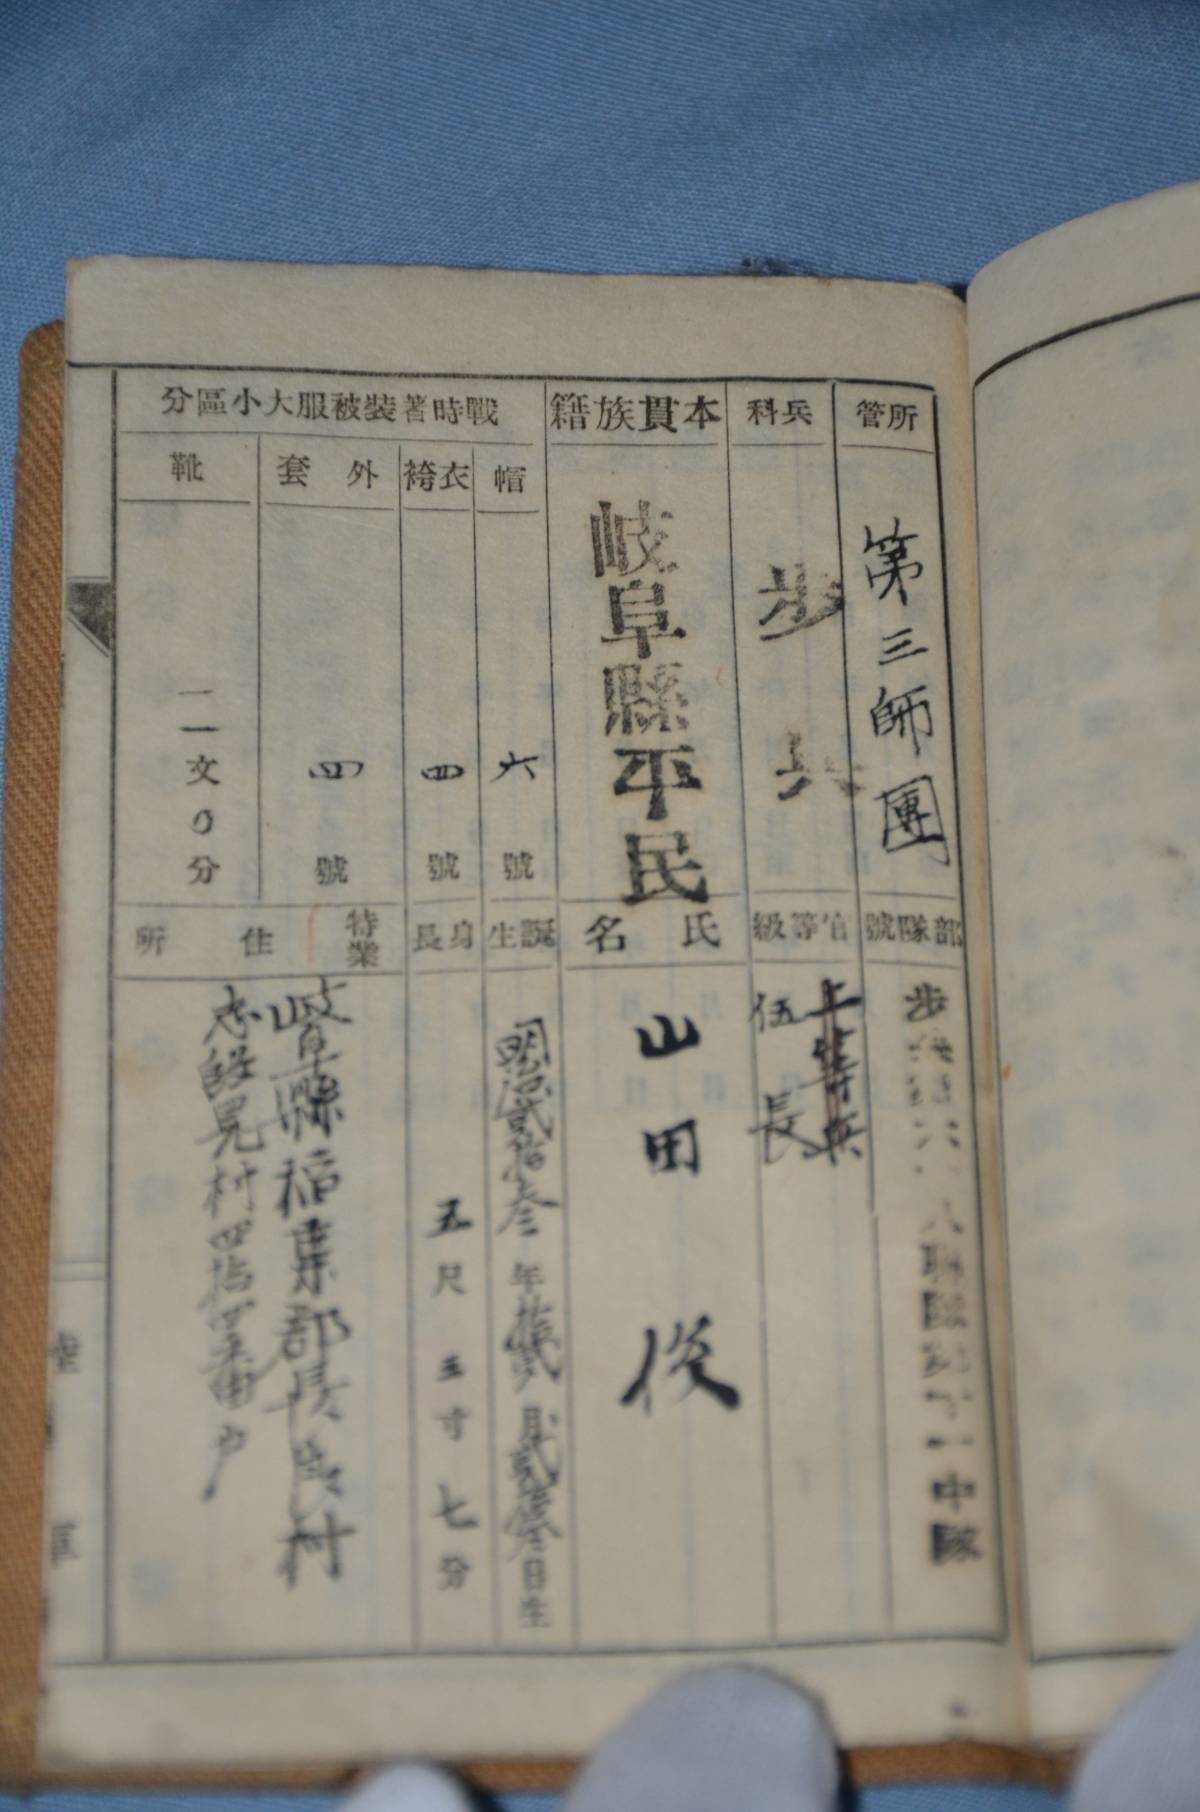 所管
第三師團
兵科
歩兵
本貫族籍
岐阜縣平民
戰時著裝被服大小區分
帽
六號
衣袴
四號
外套
四號
靴
一一文0分
部隊號
歩
八聯隊第十一中隊
官等級
上等兵
伍長
氏名
山田俊
誕生
明治貳拾参年拾貳月貳拾参日生
身長
五尺三寸七分
特業
住所
岐阜縣稲葉郡長良村
志段見村四拾四番戸
陸軍